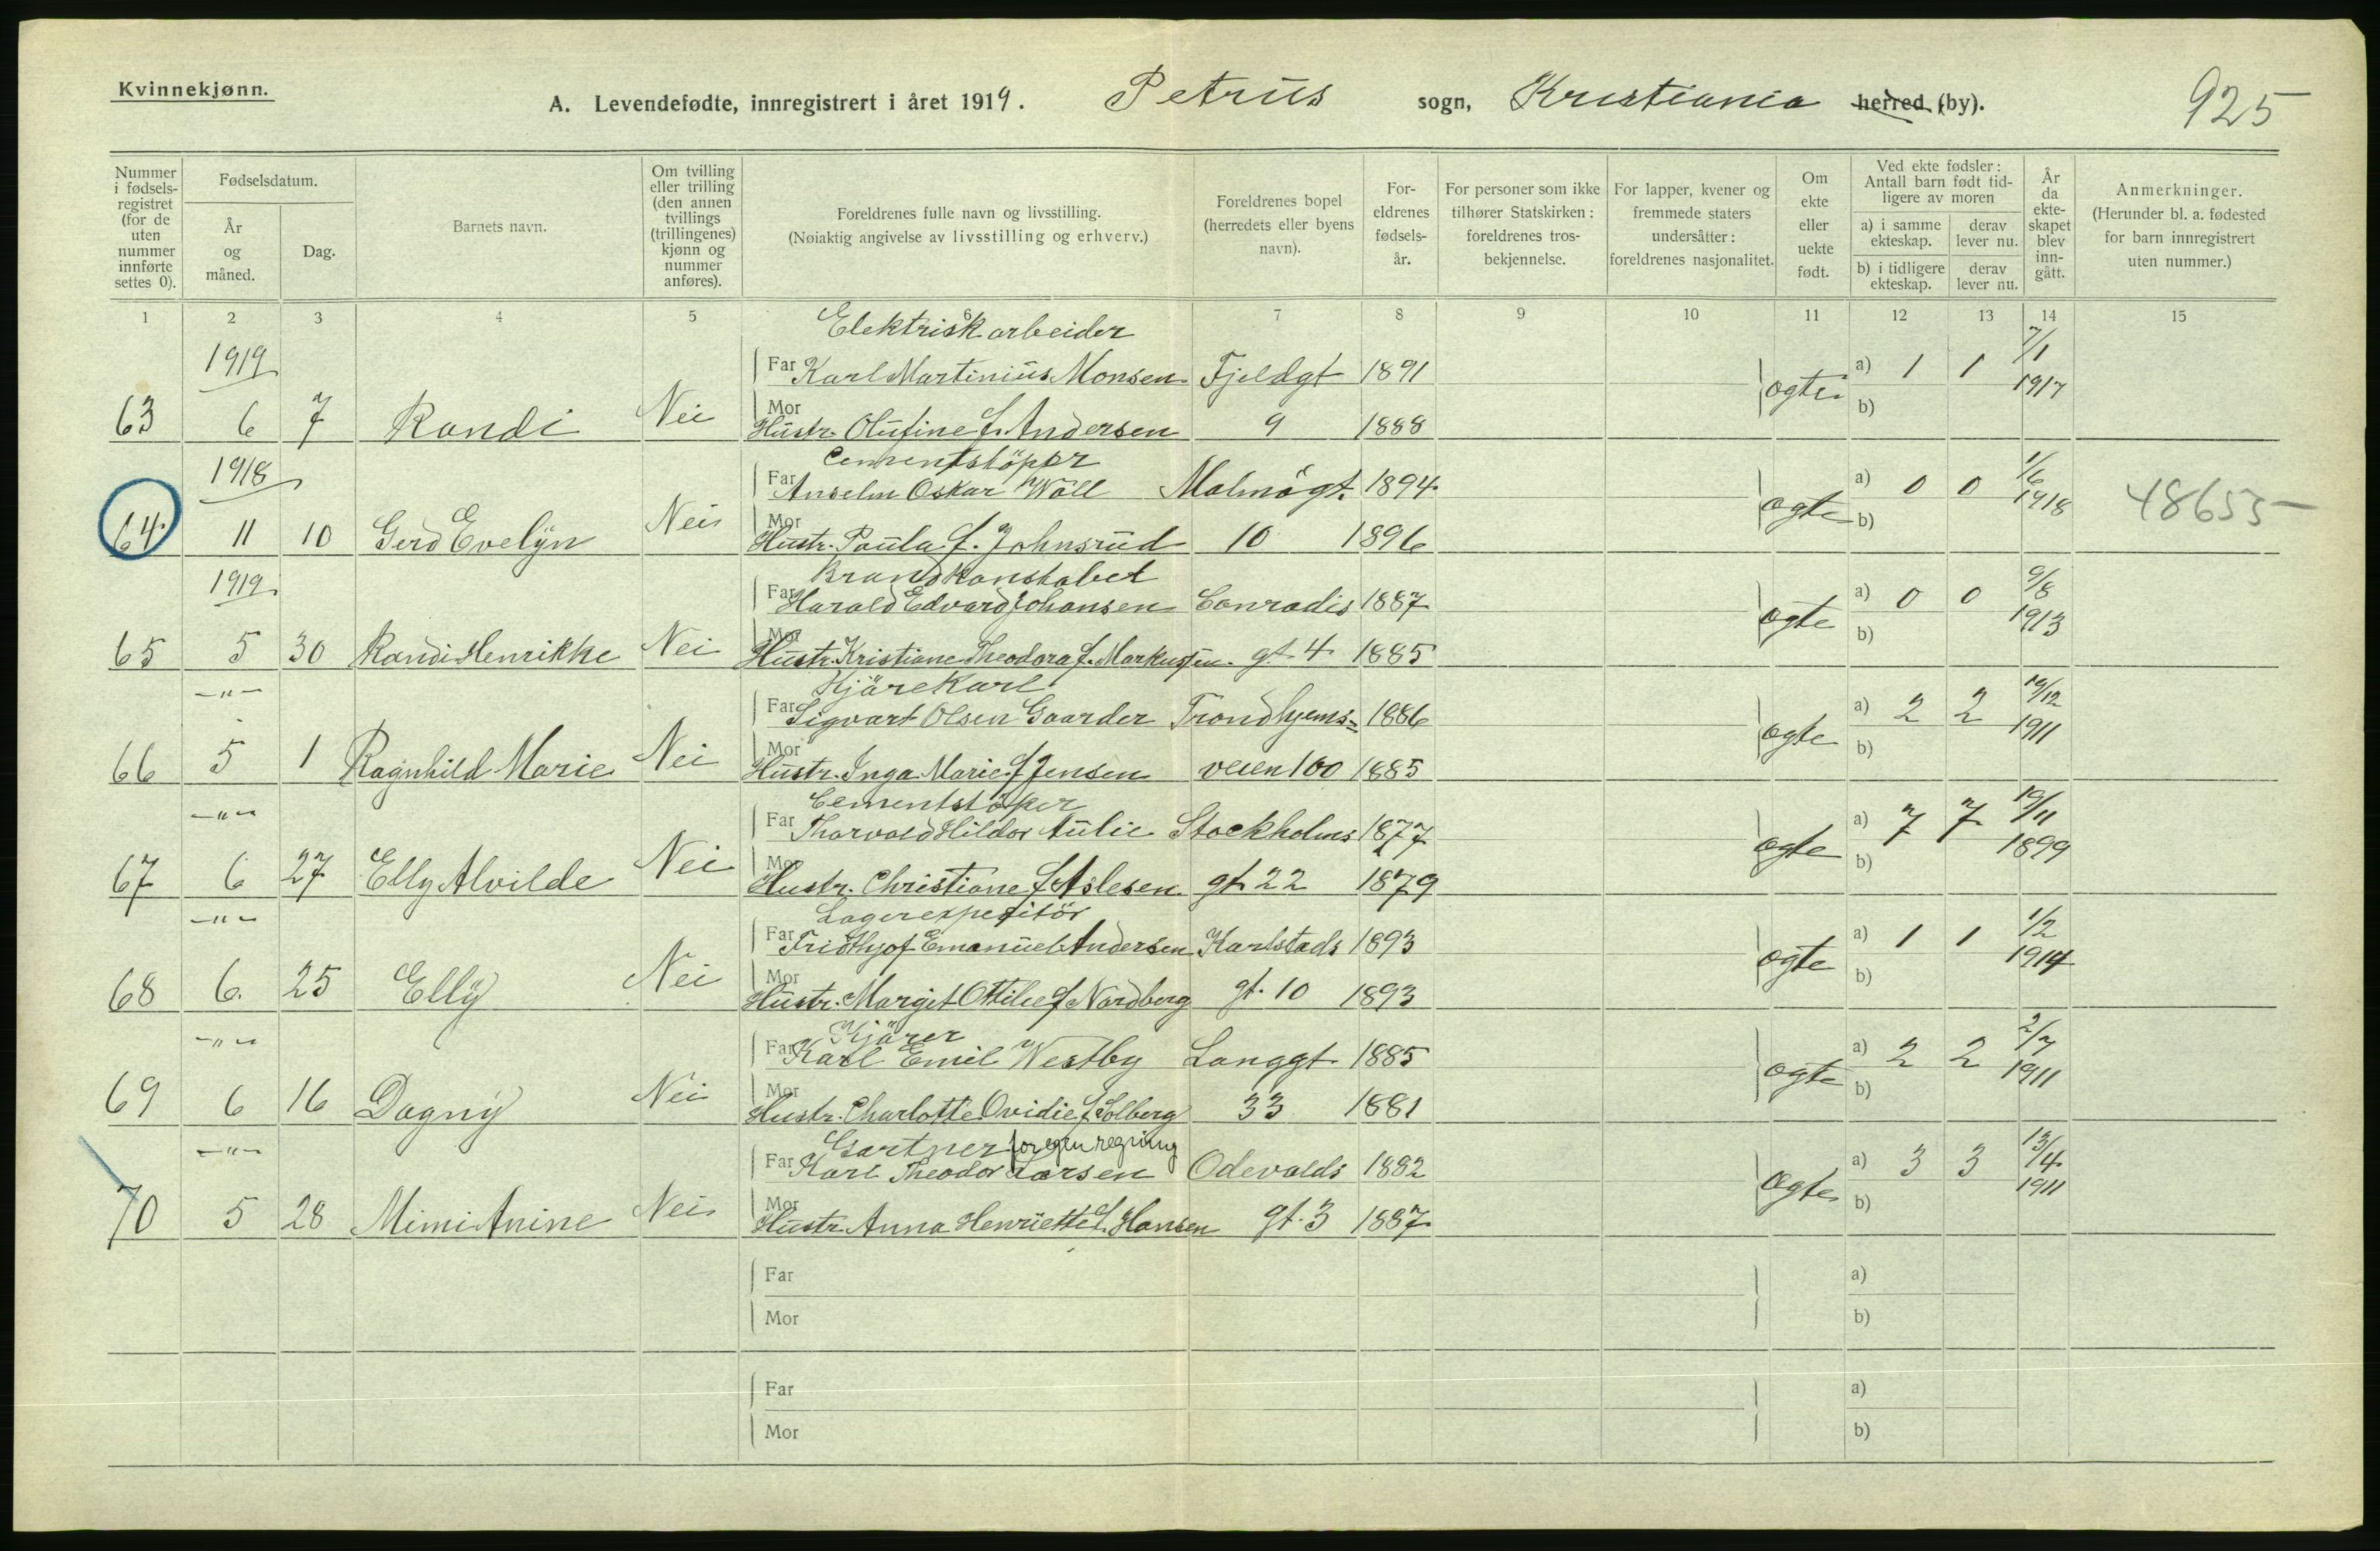 Kvinnekjønn.
A. Levendefødte, innregistrert i året 1919. Petrus sogn, Kristiania herred (by). 925
Nummer i fødsels-registret (for de uten nummer innførte settes 0).
Fødselsdatum.
År og måned.
Dag.
Barnets navn.
Om tvilling eller trilling (den annen tvillings (trillingenes) kjønn og nummer anføres).
Foreldrenes fulle navn og livsstilling.
(Nøiaktig angivelse av livsstilling og erhverv.)
Foreldrenes bopel (herredets eller byens navn).
For-eldrenes fødsels-år.
For personer som ikke tilhører Statskirken: foreldrenes tros-bekjennelse.
For lapper, kvener og fremmede staters undersåtter: foreldrenes nasjonalitet.
Om ekte eller uekte født.
Ved ekte fødsler: Antall barn født tid-ligere av moren
a) i samme ekteskap.
derav lever nu.
b) i tidligere ekteskap.
derav lever nu.
År da ekte-skapet blev inn-gått.
Anmerkninger.
(Herunder bl. a. fødested for barn innregistrert uten nummer.)
1 2 3 4 5 6 7 8 9 10 11 12 13 14 15
Elektrisk arbeider
1919 Far Karl Martinius Monsen Fjeldgt 1891 a) 1 1 7/1
63 6 7 Randi Nei Mor Hustr. Olufine f. Andersen 9 1888 ogte b) 1917
Cementstöper
1918 Far Anselm Oskar Wäll Malmögt. 1894 a) 0 0 1/6
64 11 10 Gerd Evelyn Nei Mor Hustr. Paula f. Johnsrud 10 1896 ogte b) 1918 48655
Brandkonstabel
1919 Far Harald Edvard Johansen Conradis 1887 a) 0 0 9/8
65 5 30 Randi Henrikke Nei Mor Hustr. Kristiane Theodora f. Markussen gt 4 1885 ogte b) 1913
Kjörekarl
—"— Far Sigvart Olsen Gaarder Trondhjems= 1886 a) 2 2 /12
66 5 1 Ragnhild Marie Nei Mor Hustr. Inga Marie f Jensen veien 100 1885 ogte b) 1911
Cementstöper
—"— Far Thorvald Hildor Aulie Stockholms 1877 a) 7 7 /11
67 6 27 Elly Alvilde Nei Mor Hustr. Christiane f Aslesen gt 22 1879 ogte b) 1899
Lagerexpeditör
—"— Far Fridthjof Emanuel Andersen Karlstads 1893 a) 1 1 1/2
68 6 25 Elly Nei Mor Hustr. Margit Ottilie f Nordberg gt. 10 1893 ogte b) 1914
Kjörer
—"— Far Karl Emil Westby Langgt 1885 a) 2 2 2/7
69 6 16 Dagny Nei Mor Hustr. Charlotte Ovidie f Solberg 33 1881 ogte b) 1911
Gartner for egen regning
—"— Far Karl Theodor Larsen Odevalds 1882 a) 3 3 13/4
70 5 28 Mimi Anine Nei Mor Hustr. Anna Henriette f. Hansen gt. 3 1887 ogte b) 1911
Far a)
Mor b)
Far a)
Mor b)